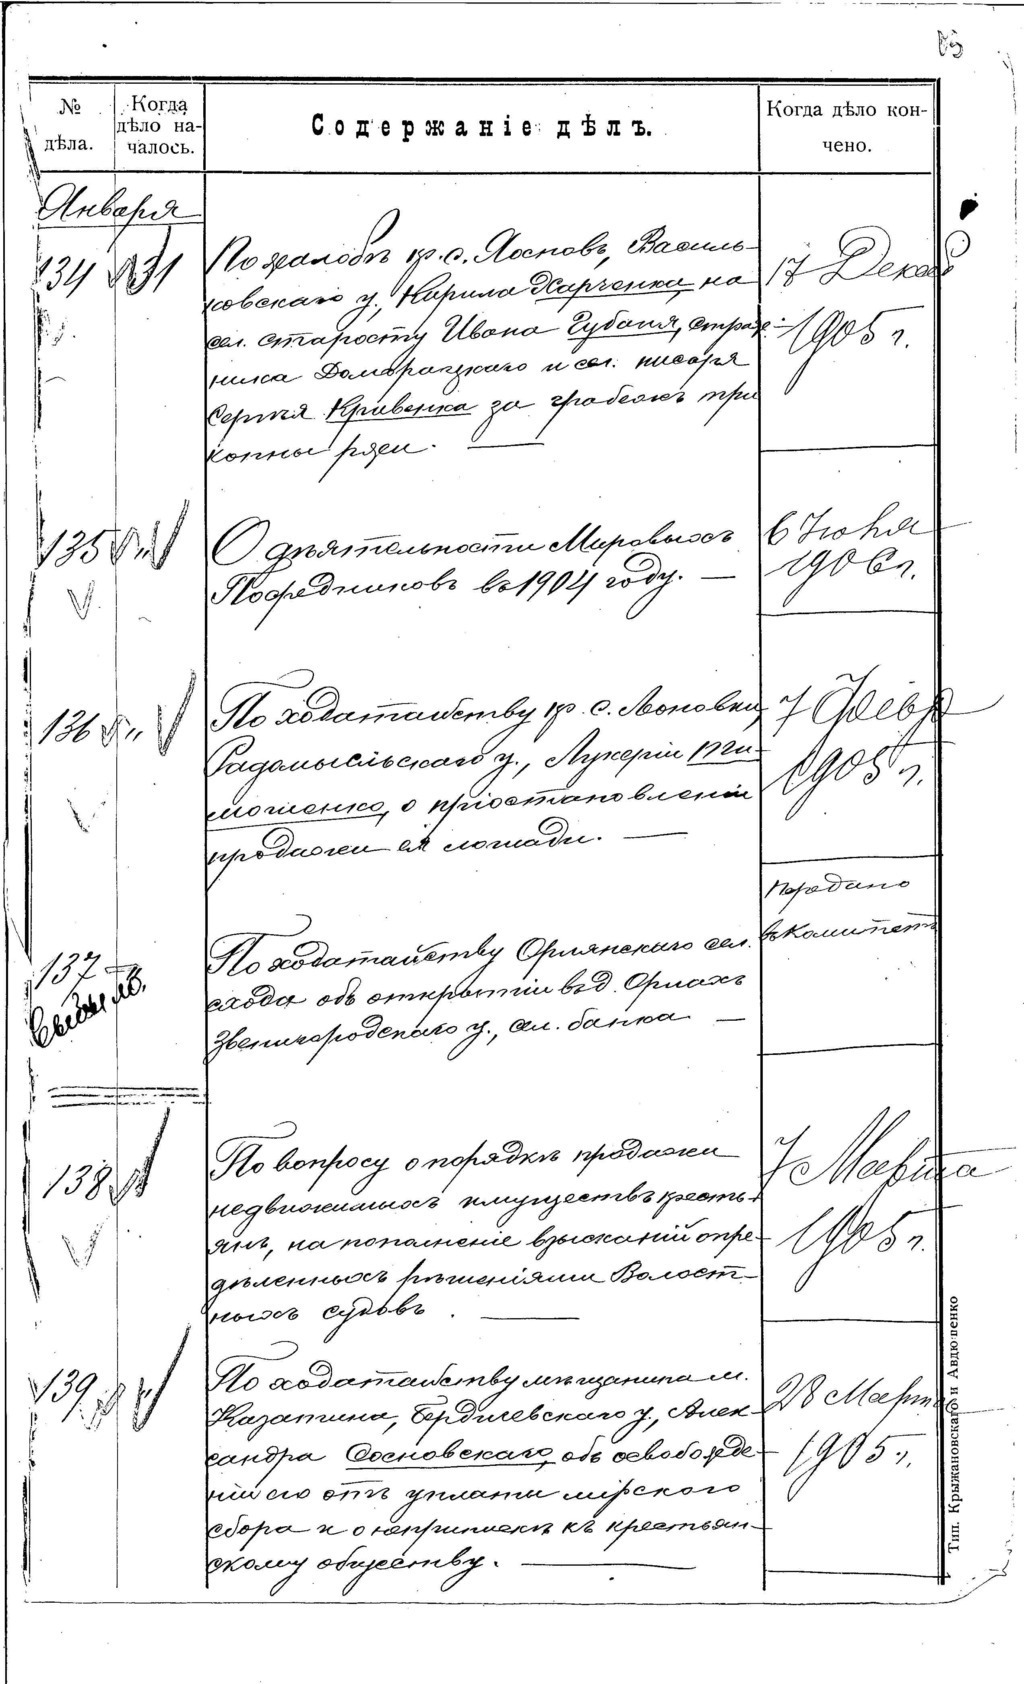 № дѣла.
Когда дѣло на-
чалось.
Содержаніе дѣлъ.
Когда дѣло кон-
чено.
Января
134 31
По жалобѣ кр. с. Яспокъ, Василь-
ковскаго у. Кирила Харченка, на
сел. старосту Ивана Губаня, страж-
ника Доморацкаго и сел. писаря
Сергѣя Кривенка за грабежъ три
копны ржи. —
17 Декаб
1905 г.
135 "
О дѣятельности Мировыхъ
Посредниковъ въ 1904 году. —
6 Іюня
1906 г.
136 "
По ходатайству кр. с. Ляховки,
Радомысльскаго у., Лукеріи Ти-
мошенко, о пріостановленіи
продажи ея лошади. —
7 Февр
1905 г.
137
По ходатайству Орлянскаго сел.
схода объ открытіи въ д. Орлахъ
Звенигородскаго у., сел. банка —
Передано
въ Комитетъ
138
По вопросу о порядкѣ продажи
недвижимыхъ имуществъ кресть-
янъ, на пополненіе взысканій опре-
дѣленныхъ рѣшеніями Волост-
ныхъ судовъ. —
7 Марта
1905 г.
139
По ходатайству мѣщанина м.
Казатина, Бердичевскаго у., Алек-
сандра Сосновскаго, объ освобожде-
ніи его отъ уплаты мірского
сбора и о неприпискѣ къ крестьян-
скому обществу. —
28 Марта
1905 г.
Тип. Крыжановскаго и Авдюшенко